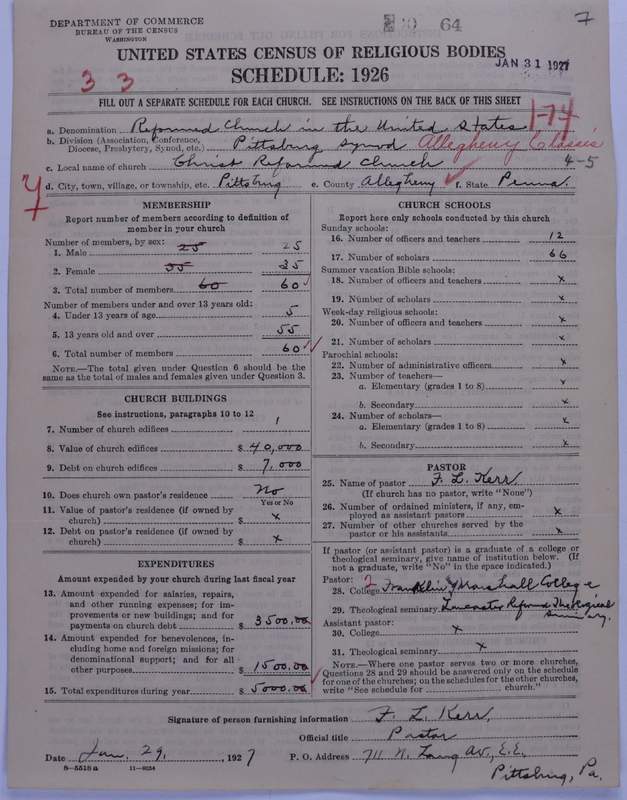 DEPARTMENT OF COMMERCE
BUREAU OF THE CENSUS
WASHINGTON
64
7
UNITED STATES CENSUS OF RELIGIOUS BODIES
JAN 31 1927
SCHEDULE: 1926
3 3
FILL OUT A SEPARATE SCHEDULE FOR EACH CHURCH. SEE INSTRUCTIONS ON THE BACK OF THIS SHEET
1-74
a. Denomination Reformed Church in the United States
b. Division (Association, Conference, Diocese, Presbytery, Synod, etc.) Pittsburg Synod Allegheny Classis
c. Local name of church Christ Reformed Church 4-5
d. City, town, village, or township, etc. Pittsburg e. County Allegheny f. State Penna.
MEMBERSHIP
Report number of members according to definition of
member in your church
Number of members, by sex:
1. Male 25 25
2. Female 35 35
3. Total number of members 60 60
Number of members under and over 13 years old:
4. Under 13 years of age 5
5. 13 years old and over 55
6. Total number of members 60
NOTE.—The total given under Question 6 should be the
same as the total of males and females given under Question 3.
CHURCH BUILDINGS
See instructions, paragraphs 10 to 12
7. Number of church edifices 1
8. Value of church edifices $ 40,000
9. Debt on church edifices $ 7,000
10. Does church own pastor's residence No
Yes or No
11. Value of pastor's residence (if owned by
church) $ x
12. Debt on pastor's residence (if owned by
church) $ x
EXPENDITURES
Amount expended by your church during last fiscal year
13. Amount expended for salaries, repairs,
and other running expenses; for im-
provements or new buildings; and for
payments on church debt $ 3500.00
14. Amount expended for benevolences, in-
cluding home and foreign missions; for
denominational support; and for all
other purposes $ 1500.00
15. Total expenditures during year $ 5000.00
CHURCH SCHOOLS
Report here only schools conducted by this church
Sunday schools:
16. Number of officers and teachers 12
17. Number of scholars 66
Summer vacation Bible schools:
18. Number of officers and teachers x
19. Number of scholars x
Week-day religious schools:
20. Number of officers and teachers x
21. Number of scholars x
Parochial schools:
22. Number of administrative officers x
23. Number of teachers—
a. Elementary (grades 1 to 8) x
b. Secondary x
24. Number of scholars—
a. Elementary (grades 1 to 8) x
b. Secondary x
PASTOR
25. Name of pastor F. L. Kerr
(If church has no pastor, write "None")
26. Number of ordained ministers, if any, em-
ployed as assistant pastors x
27. Number of other churches served by the
pastor or his assistants x
If pastor (or assistant pastor) is a graduate of a college or
theological seminary, give name of institution below. (If
not a graduate, write "No" in the space indicated.)
Pastor: 2
28. College Franklin & Marshall College
29. Theological seminary Lancaster Reformed Theological
Seminary.
Assistant pastor:
30. College x
31. Theological seminary x
NOTE.—Where one pastor serves two or more churches,
Questions 28 and 29 should be answered only on the schedule
for one of the churches; on the schedules for the other churches,
write "See schedule for church."
Signature of person furnishing information F. L. Kerr,
Official title Pastor
Date Jan. 29, 1927 P. O. Address 711 N. Lang Av., E.E.,
Pittsburg, Pa.
8—5518a 11—9054